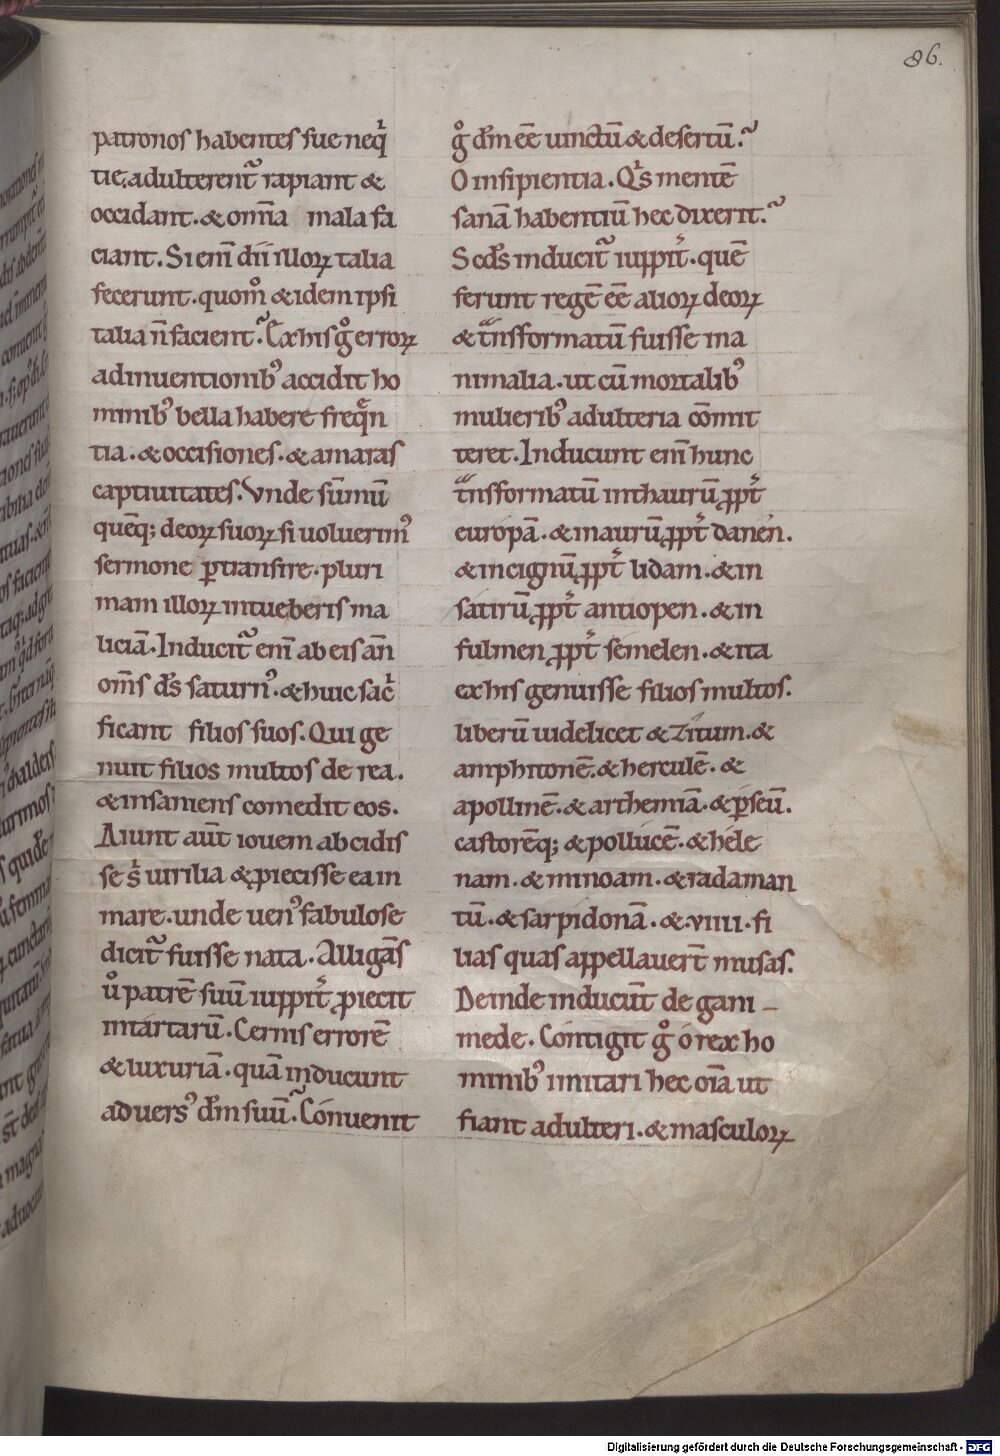 86.
patronos habentes sue neqͥ
tie, adulterent᷑ rapiant &
occidant. & om̄a mala fa
ciant. Si enī dii illoꝝ talia
fecerunt. quom̊ & idem ipsi
talia n̄ facient᷑. Ex his g̊ erroꝝ
adinuentionib᾽ accidit ho
minib᾽ bella habere freqᷓn
tia. & occisiones. & amaras
captiuitates. Vnde sūmū
quēq; deoꝝ suoꝝ si uoluerim᾽
sermone ꝑtransire. pluri
mam illoꝝ intueberis ma
liciā. Inducit᷑ enī ab eis an̄
om̄s d̄s saturn᾽. & huic sacͥ
ficant filios suos. Qui ge
nuit filios multos de rea.
& insaniens comedit eos.
Aiunt aūt iouem abcidis
se sͥ uirilia & ꝓiecisse ea in
mare. unde uen᾽ fabulose
dicit᷑ fuisse nata. Alligās
ů patrē suū iuppit̓ ꝓiecit
in tartarū. Cernis errorē
& luxuriā. quā inducunt
aduers᾽ d̄m suū. Conuenit
g̊ d̄m ēē uinctū & desertū.
O insipientia. Qͥs mentē
sanā habentiū hec dixerit.
Scd̄s inducit᷑ iuppit̓. quē
ferunt regē ēē alioꝝ deoꝝ
& tᷓnsformatū fuisse in a
nimalia. ut cū mortalib᾽
mulierib᾽ adulteria cōmit
teret. Inducunt enī hunc
tᷓnsformatū in thaurū ꝓpt̓
europā. & in aurū ꝓpt̓ danen.
& in cignū ꝓpt̓ lidam. & in
satirū ꝓpt̓ antiopen. & in
fulmen ꝓpt̓ semelen. & ita
ex his genuisse filios multos.
liberū uidelicet & zitum. &
amphitonē. & herculē. &
apollinē. & arthemiā. & ꝑseū.
castorēq; & pollucē. & hele
nam. & minoam. & radaman
tū. & sarpidonā. & .viiii. fi
lias quas appellauer̄t musas.
Deinde inducūt de gani-
mede. Contigit g̊ o rex ho
minib᾽ imitari hec oīa ut
fiant adulteri. & masculoꝝ
Digitalisierung gefördert durch die Deutsche Forschungsgemeinschaft - DFG